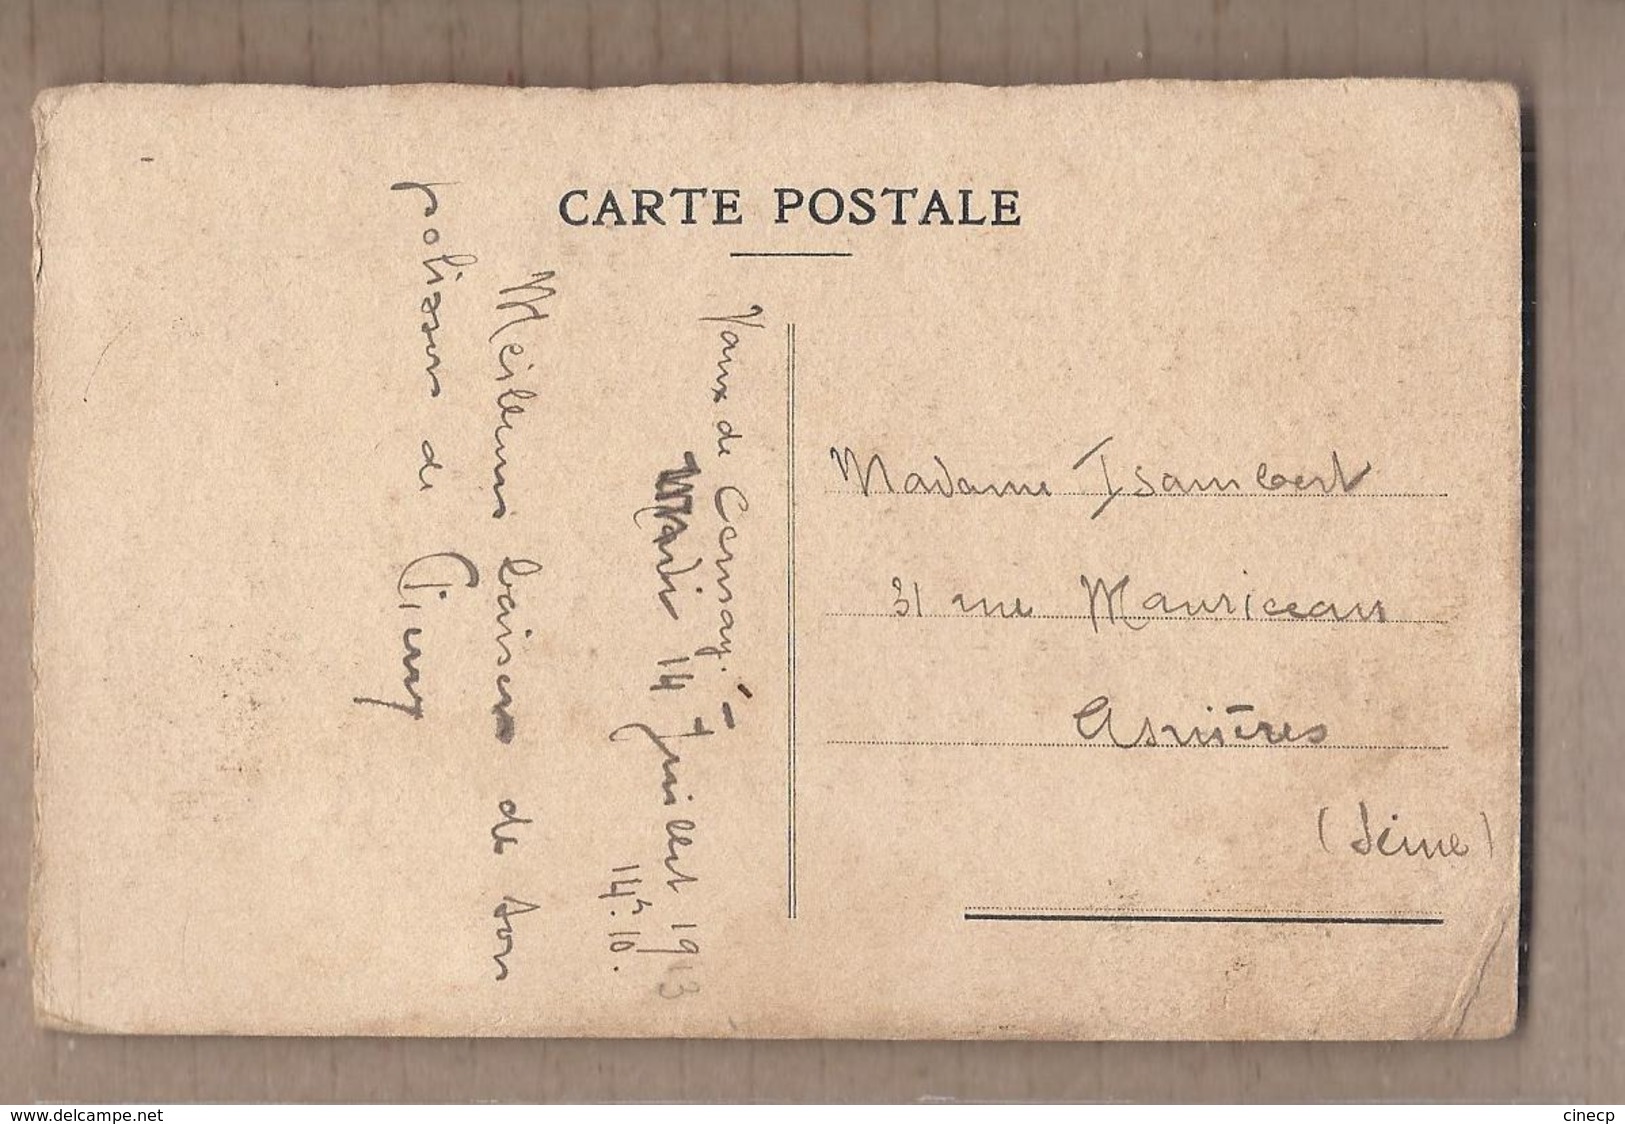 CARTE POSTALE
Vaux de Cernay.
Mardi 14 Juillet 1913
14h.10.
Meilleurs baisers de ton
polisson de Pierrot
Madame Isambert
31 rue Mauriceau
Asnières
(Seine)
www.delcampe.net
cinecp